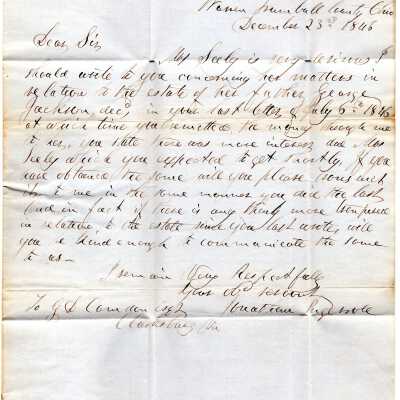 Warren Trumbull County Ohio
December 23rd 1846
Dear Sir
Mrs Seely is very desirous I
should write to you concerning her matters in
relation to the estate of her father George
Jackson, decd, in your last letter of July 6th 1846
at which time you remitted the money through me
to her, you state there was more interest due Mrs
Seely which you expected to get shortly, if you
have obtained the same will you please transmit
to me in the same manner you did the last
And in fact if there is any thing more transpired
in relation to the estate since you last wrote, will
you be kind enough to communicate the same
to us —
I remain Very Respectfully
Your Obt Servant
To G D Camden Esqr Jonathan Ingersoll
Clarksburg Va